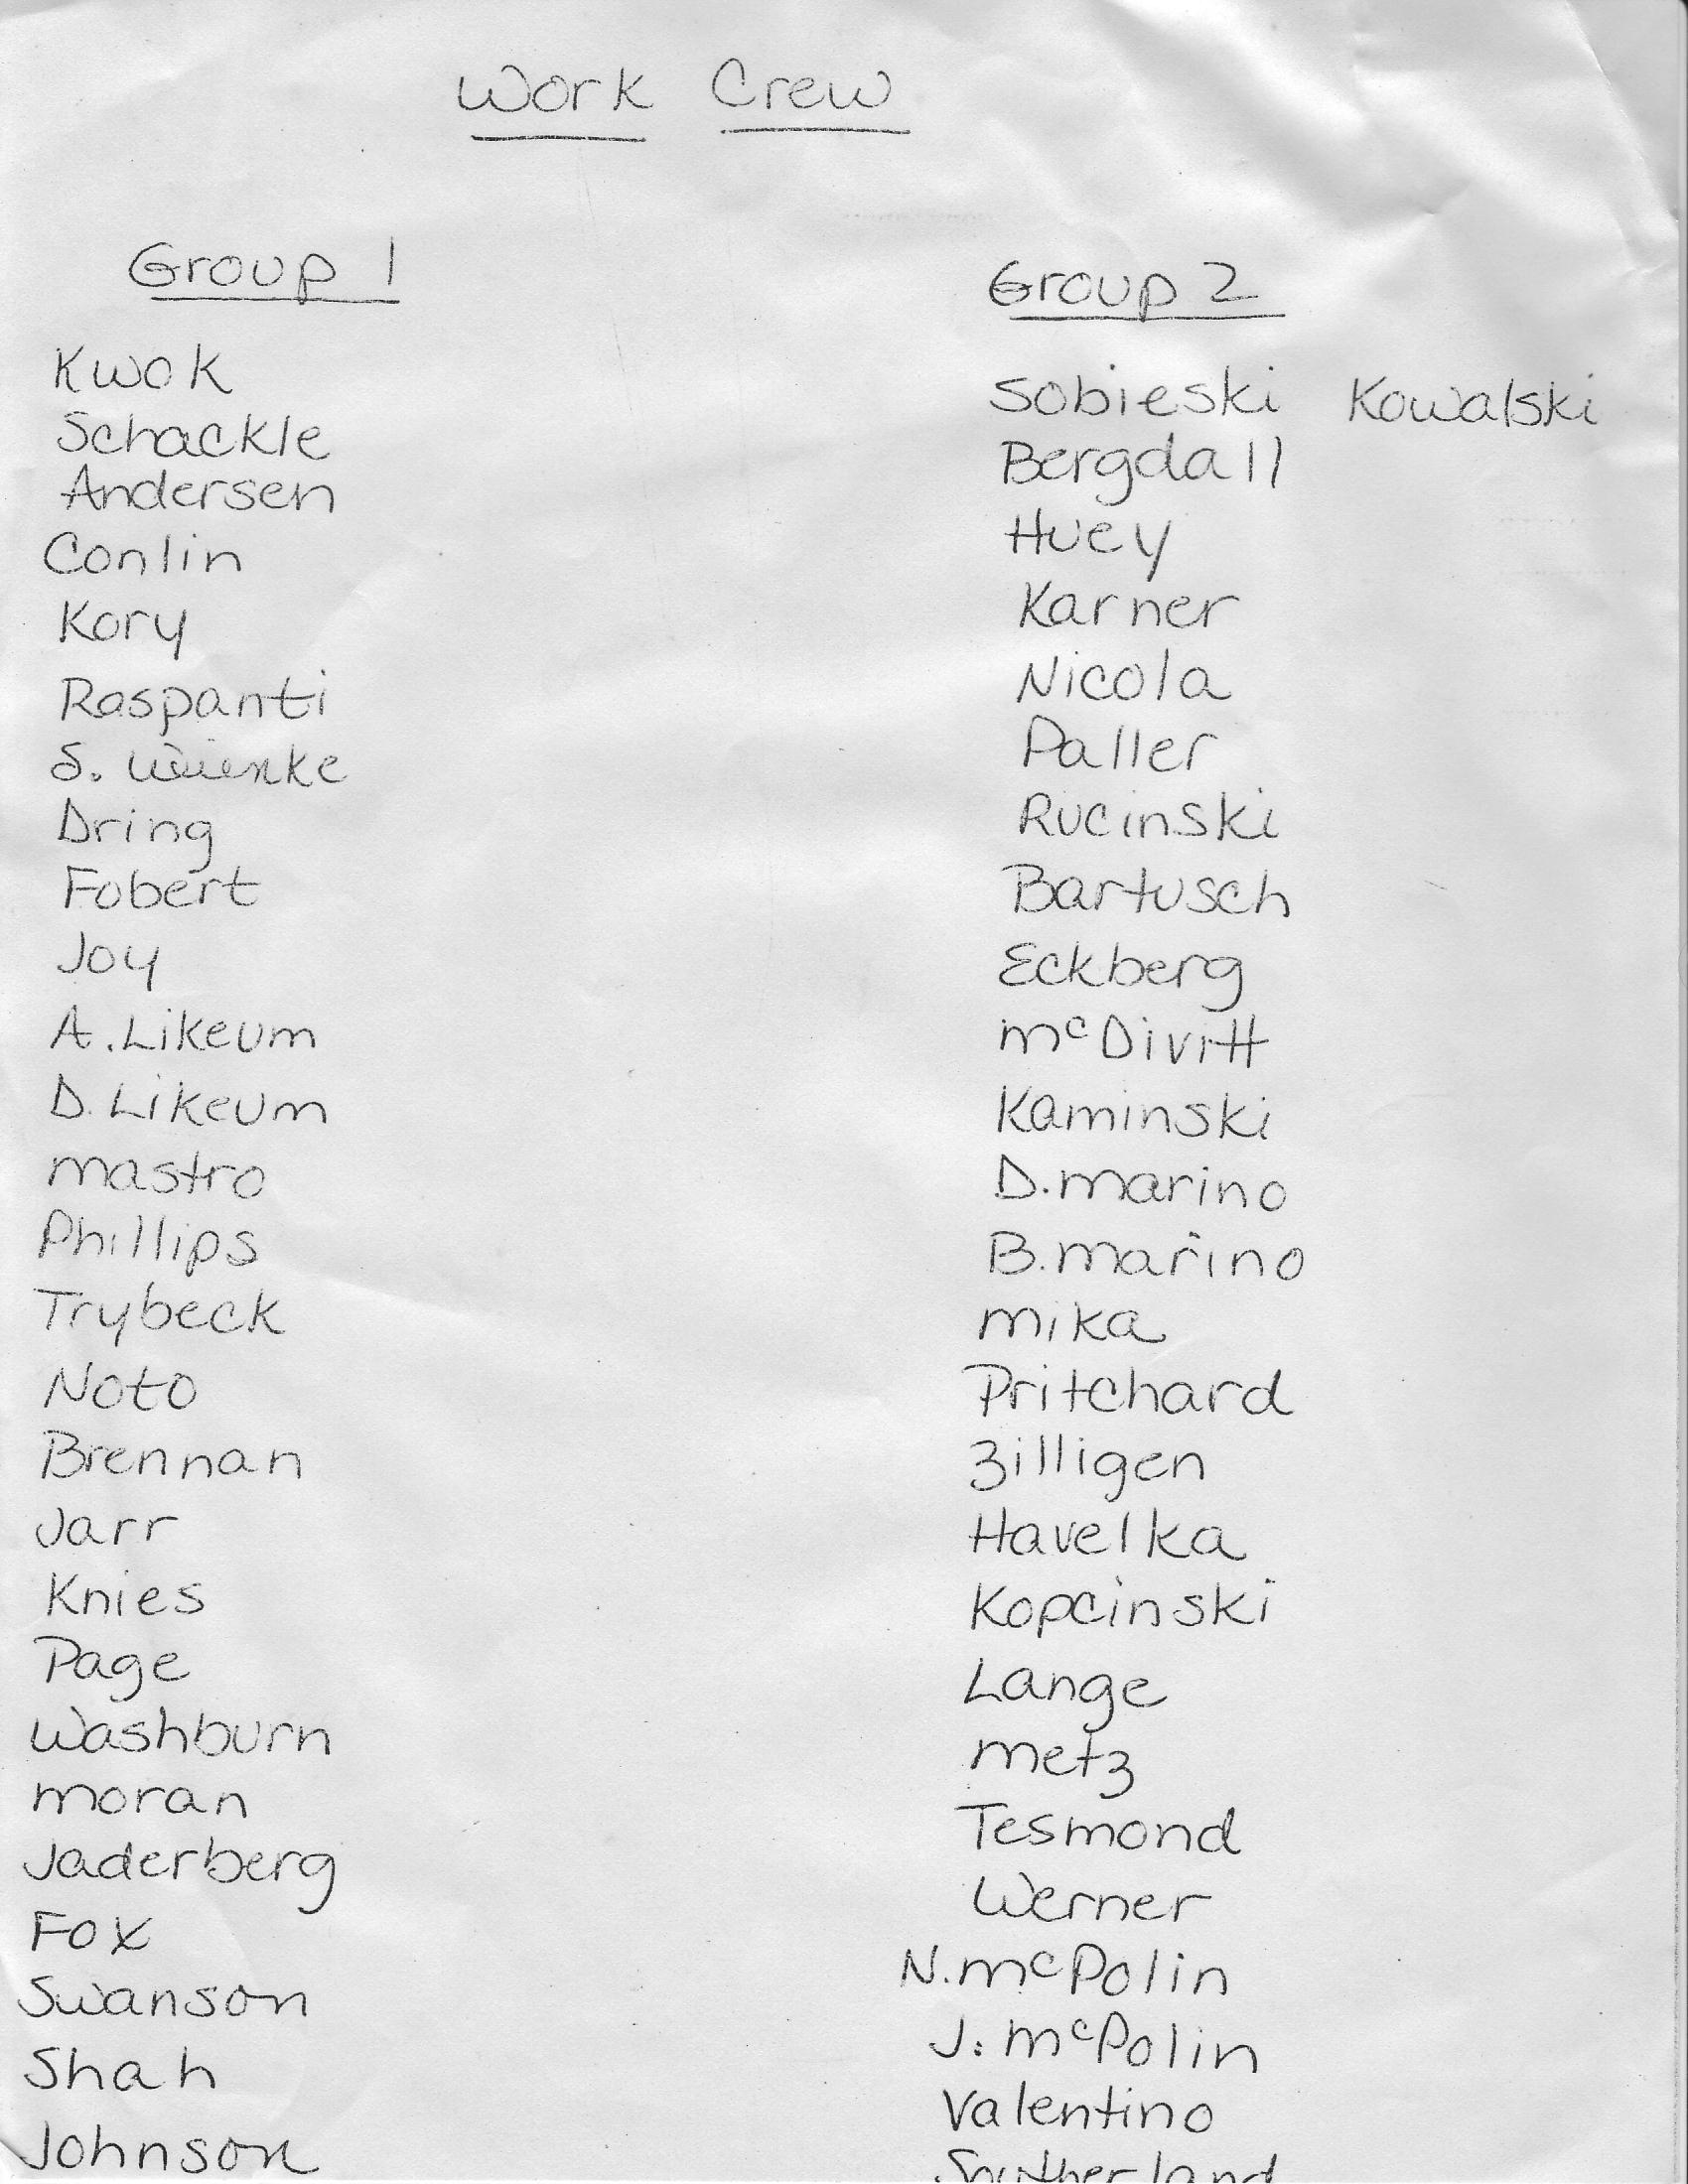 Work Crew
Group 1
Kwok
Schackle
Andersen
Conlin
Kory
Raspanti
S.
Dring
Fobert
Joy
A. Likeum
D. Likeum
mastro
Phillips
Trybeck
Noto
Brennan
Jarr
Knies
Page
Washburn
moran
Jaderberg
Fox
Swanson
Shah
Johnson
Group 2
Sobieski Kowalski
Bergdall
Huey
Karner
Nicola
Paller
Rucinski
Bartusch
Eckberg
McDivitt
Kaminski
D. marino
B. marino
mika
Pritchard
Zilligen
Havelka
Kopcinski
Lange
metz
Tesmond
Werner
N. McPolin
J. McPolin
Valentino
Southerland